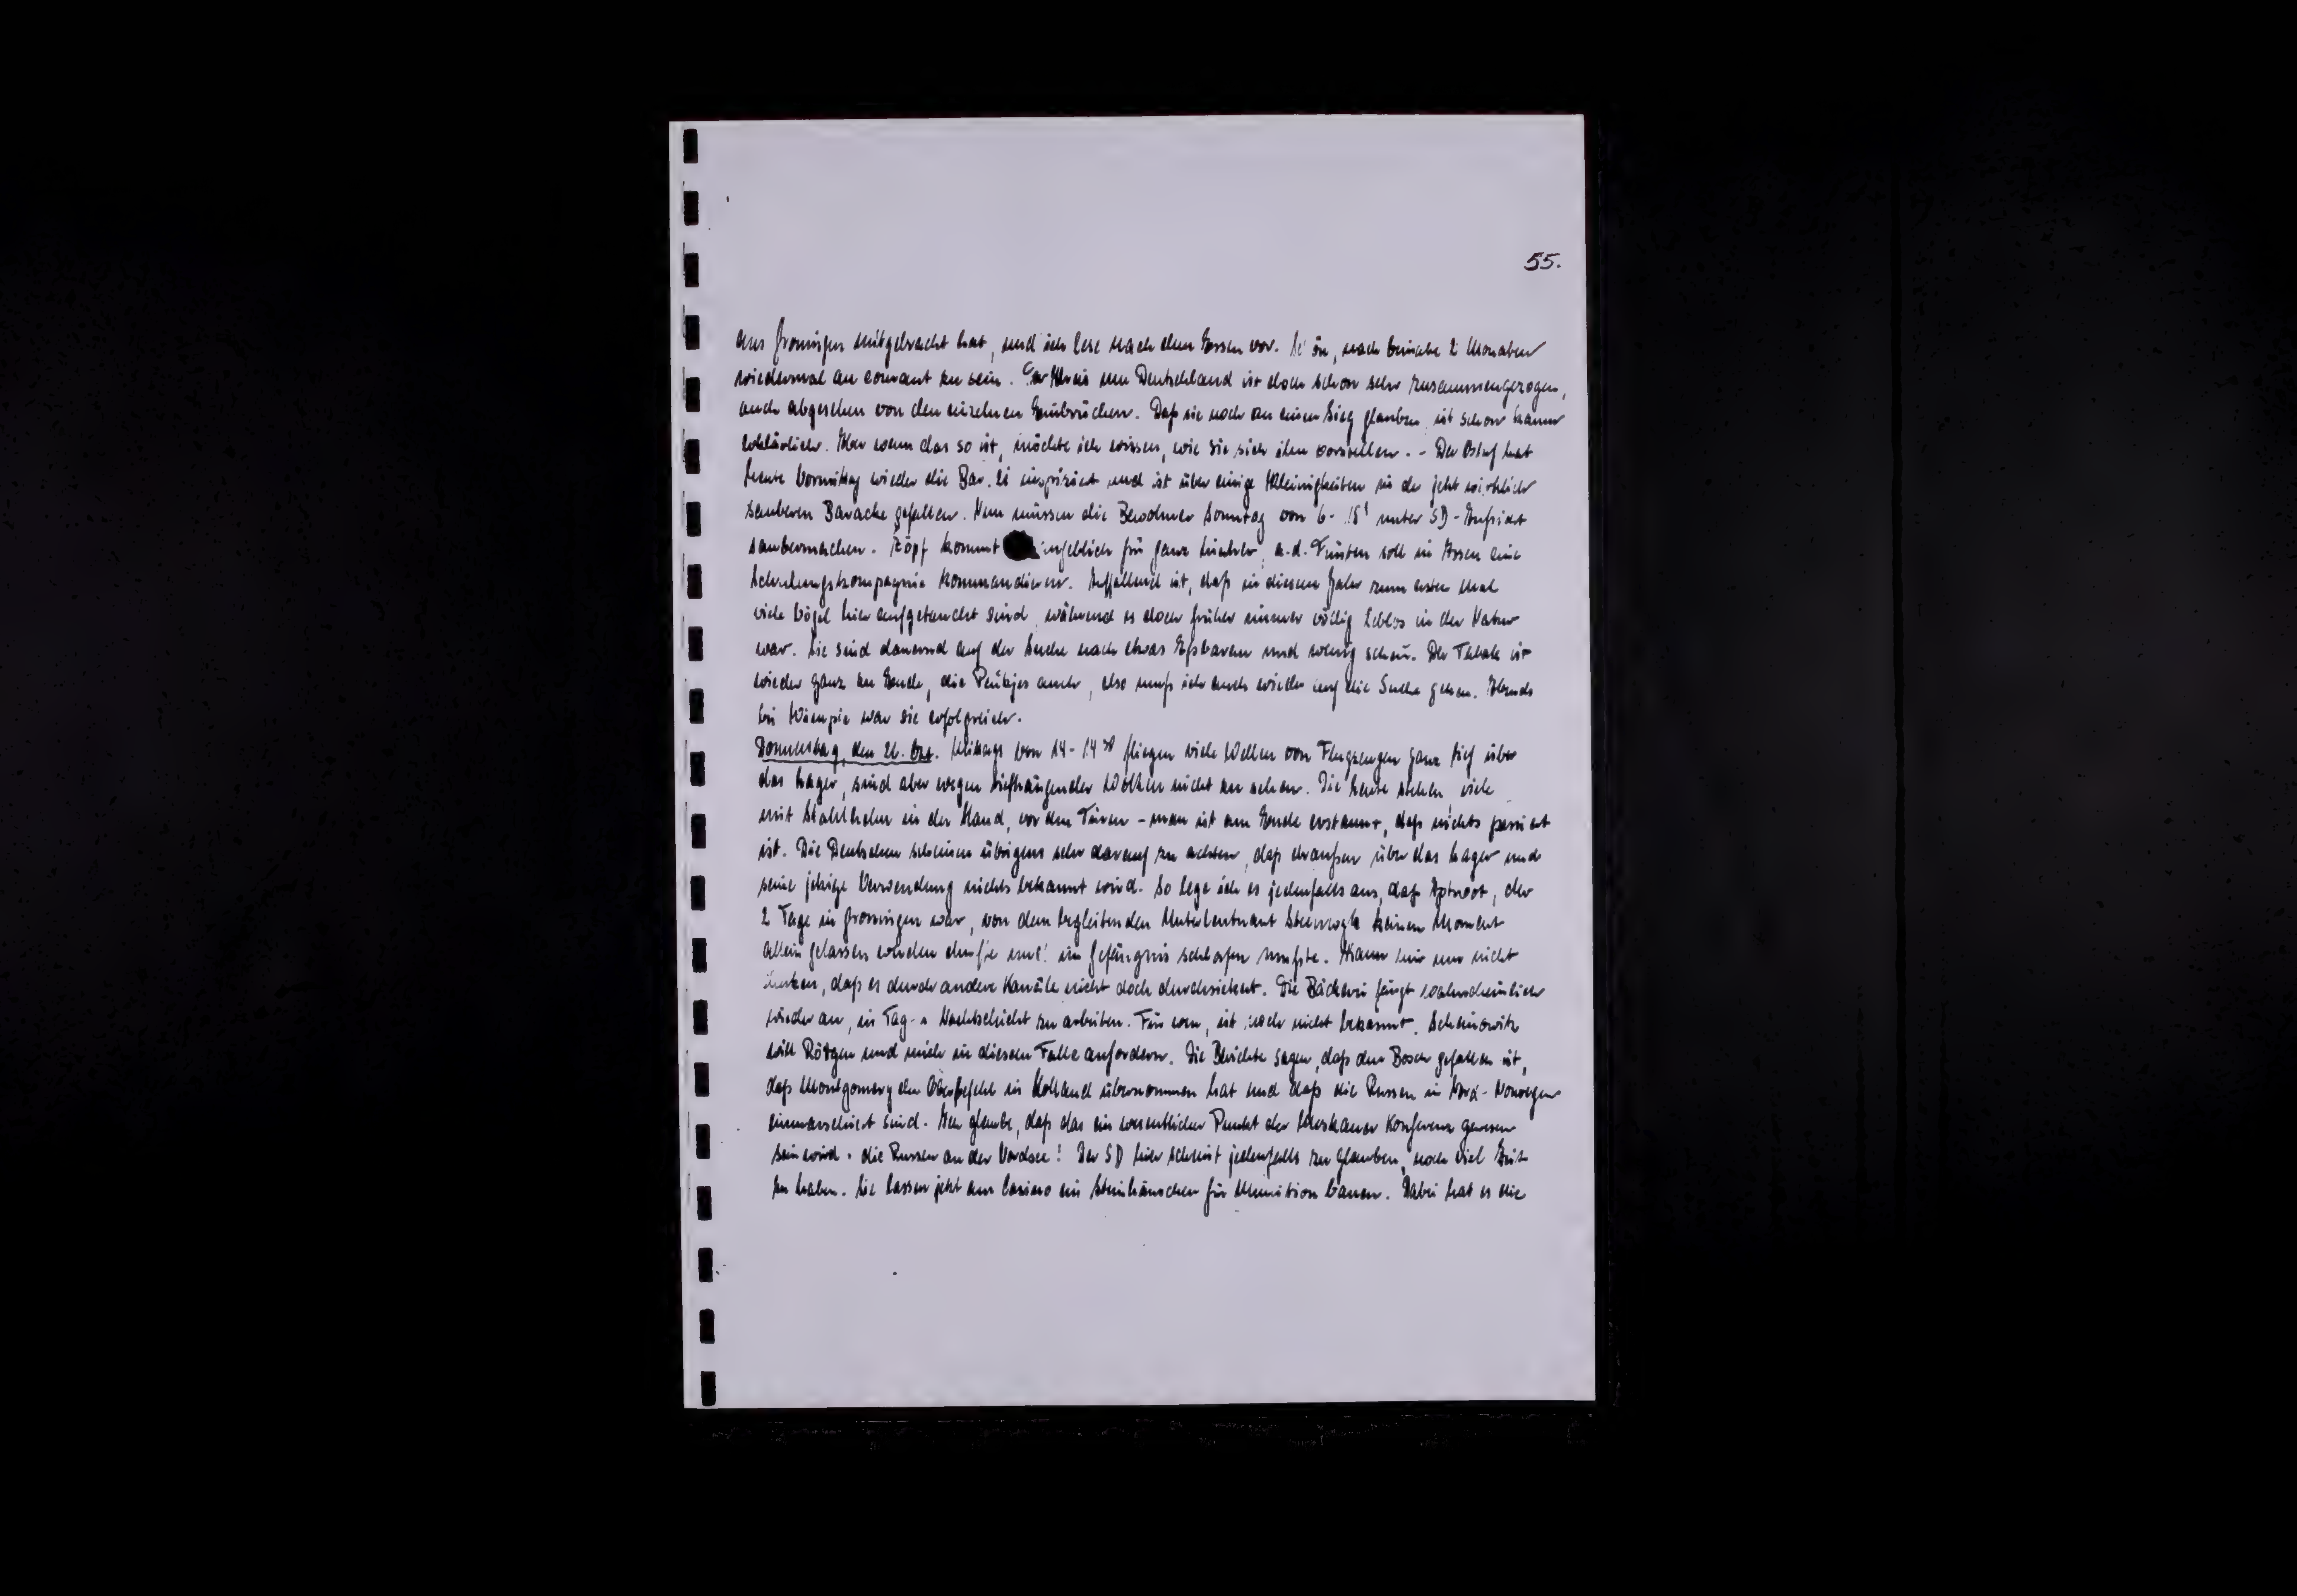 55.
aus Groningen mitgebracht hat, und ich lese nach dem Essen vor. nach beinahe 2 Monaten
wiedermal au courant zu sein. Der Kreis um Deutschland ist doch schon sehr zusammengezogen,
auch abgesehen von den einzelnen Einbrüchen. Daß sie noch an einen Sieg glauben, ist schon kaum
erklärlich. Aber wenn das so ist, möchte ich wissen, wie sie sich ihn vorstellen. - Der Ostuf hat
heute Vormittag wieder die Bar. inspiziert und ist über einige Kleinigkeiten in der jetzt wirklich
sauberen Baracke gefallen. Nun müssen die Bewohner Sonntag von 6- unter SD-Aufsicht
saubermachen. Zöpf kommt angeblich für ganz hierher, a.d. Fünten soll in Assen eine
Schulungskompagnie kommandieren. Auffallend ist, daß in diesem Jahr zum ersten Mal
viele Vögel hier aufgetaucht sind, während es doch früher immer völlig leblos in der Natur
war. Sie sind dauernd auf der Suche nach etwas Eßbarem und wenig scheu. Der Tabak ist
wieder ganz zu Ende, die Peukjes auch, also muß ich auch wieder auf die Suche gehen. Abends
bei Wiempie war sie erfolgreich.
Donnerstag, den 26. Okt. Mittags von 14-14³⁰ fliegen viele Wellen von Flugzeugen ganz tief über
das Lager, sind aber wegen tiefhängender Wolken nicht zu sehen. Die Leute stehen, viele
mit Stahlhelm in der Hand, vor den Türen - man ist am Ende erstaunt, daß nichts passiert
ist. Die Deutschen scheinen übrigens sehr darauf zu achten, daß draußen über das Lager und
seine jetzige Verwendung nichts bekannt wird. So lege ich es jedenfalls aus, daß der
2 Tage in Groningen war, von dem begleitenden Unterleutnant keinen Moment
allein gelassen werden durfte und im Gefängnis schlafen mußte. Kann mir nur nicht
denken, daß es durch andere Kanäle nicht doch durchsickert. Die Bäckerei fängt wahrscheinlich
wieder an, in Tag- u Nachtschicht zu arbeiten. Für wen, ist noch nicht bekannt. Scheinowitz
will Rötgen und mich in diesem Falle anfordern. Die Berichte sagen, daß den Bosch gefallen ist,
daß Montgomery den Oberbefehl in Holland übernommen hat und daß die Russen in Nord-Norwegen
einmarschiert sind. Ich glaube, daß das ein wesentlicher Punkt der Moskauer Konferenz gewesen
sein wird: die Russen an der Nordsee! Der SD hier scheint jedenfalls zu glauben, noch viel Zeit
zu haben. Sie lassen jetzt am Casino ein Steinhäuschen für Munition bauen. Dabei hat es die